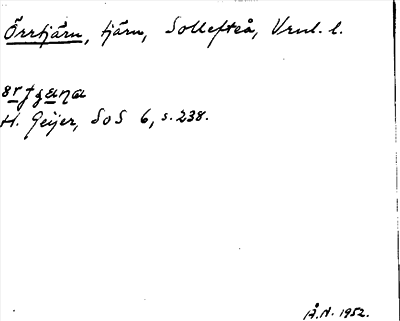 Örrtjärn, tjärn, Sollefteå, Vrnl. l.
H. Geijer, SoS 6, s. 238.
Å.N. 1952.